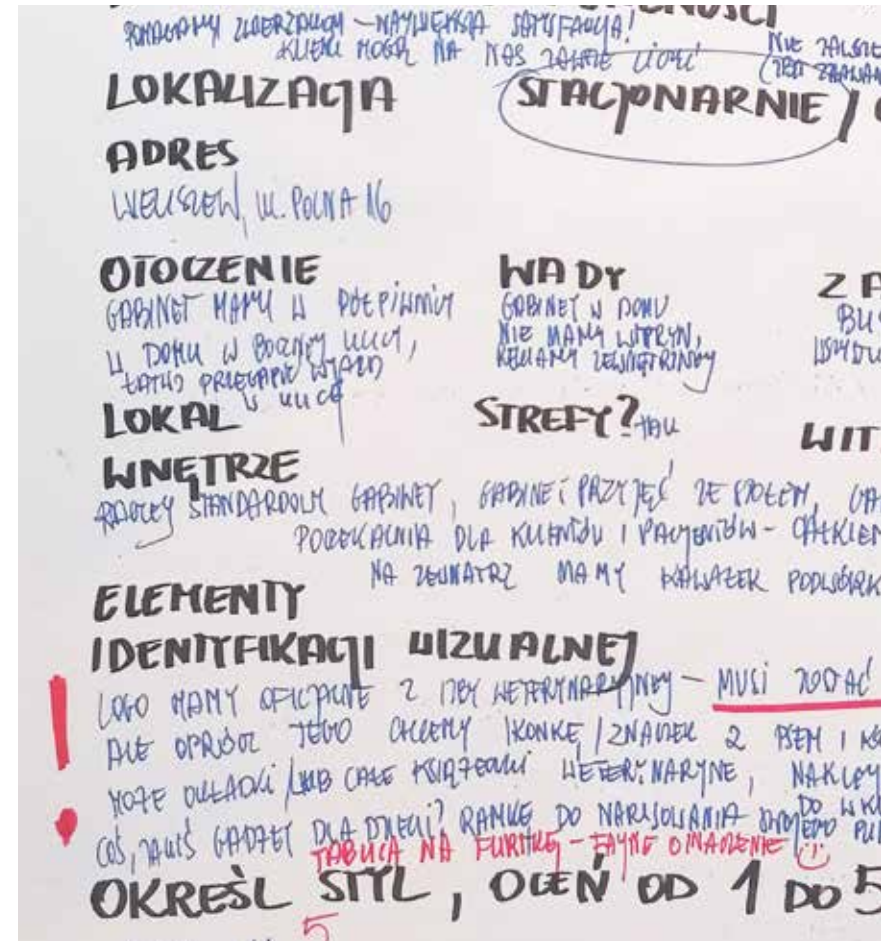 POMAGAMY ZWIERZAKOM – NAJWIĘKSZA SATYSFAKCJA!
KLIENCI MOGĄ NA NAS ZAWSZE LICZYĆ
NIE
LOKALIZACJA STACJONARNIE /
ADRES
WIELISZEW, UL. POLNA 16
OTOCZENIE WADY ZA
GABINET MAMY W PÓŁPIWNICY
W DOMU W BOCZNEJ ULICY,
ŁATWO PRZEGAPIĆ WJAZD
W ULICĘ
GABINET W DOMU
NIE MAMY WITRYN,
REKLAMY ZEWNĘTRZNEJ
LOKAL STREFY? TAK WIT
WNĘTRZE
RACZEJ STANDARDOWY GABINET, GABINET PRZYJĘĆ ZE STOŁEM,
POCZEKALNIA DLA KLIENTÓW I PACJENTÓW – CAŁKIEM
NA ZEWNĄTRZ MAMY KAWAŁEK PODWÓRK
ELEMENTY
IDENTYFIKACJI WIZUALNEJ
! LOGO MAMY OFICJALNE Z IZBY WETERYNARYJNEJ – MUSI ZOSTAĆ
ALE OPRÓCZ TEGO CHCEMY IKONKĘ / ZNACZEK Z PSEM I
MOŻE OKŁADKI LUB CAŁE KSIĄŻECZKI WETERYNARYJNE, NAKLEJ
COŚ, JAKIŚ GADŻET DLA DZIECI? RAMKĘ DO NARYSOWANIA SWOJEGO
TABLICA NA FURTKĘ – FAJNE OZNACZENIE
OKREŚL STYL, OCEŃ OD 1 DO 5
5